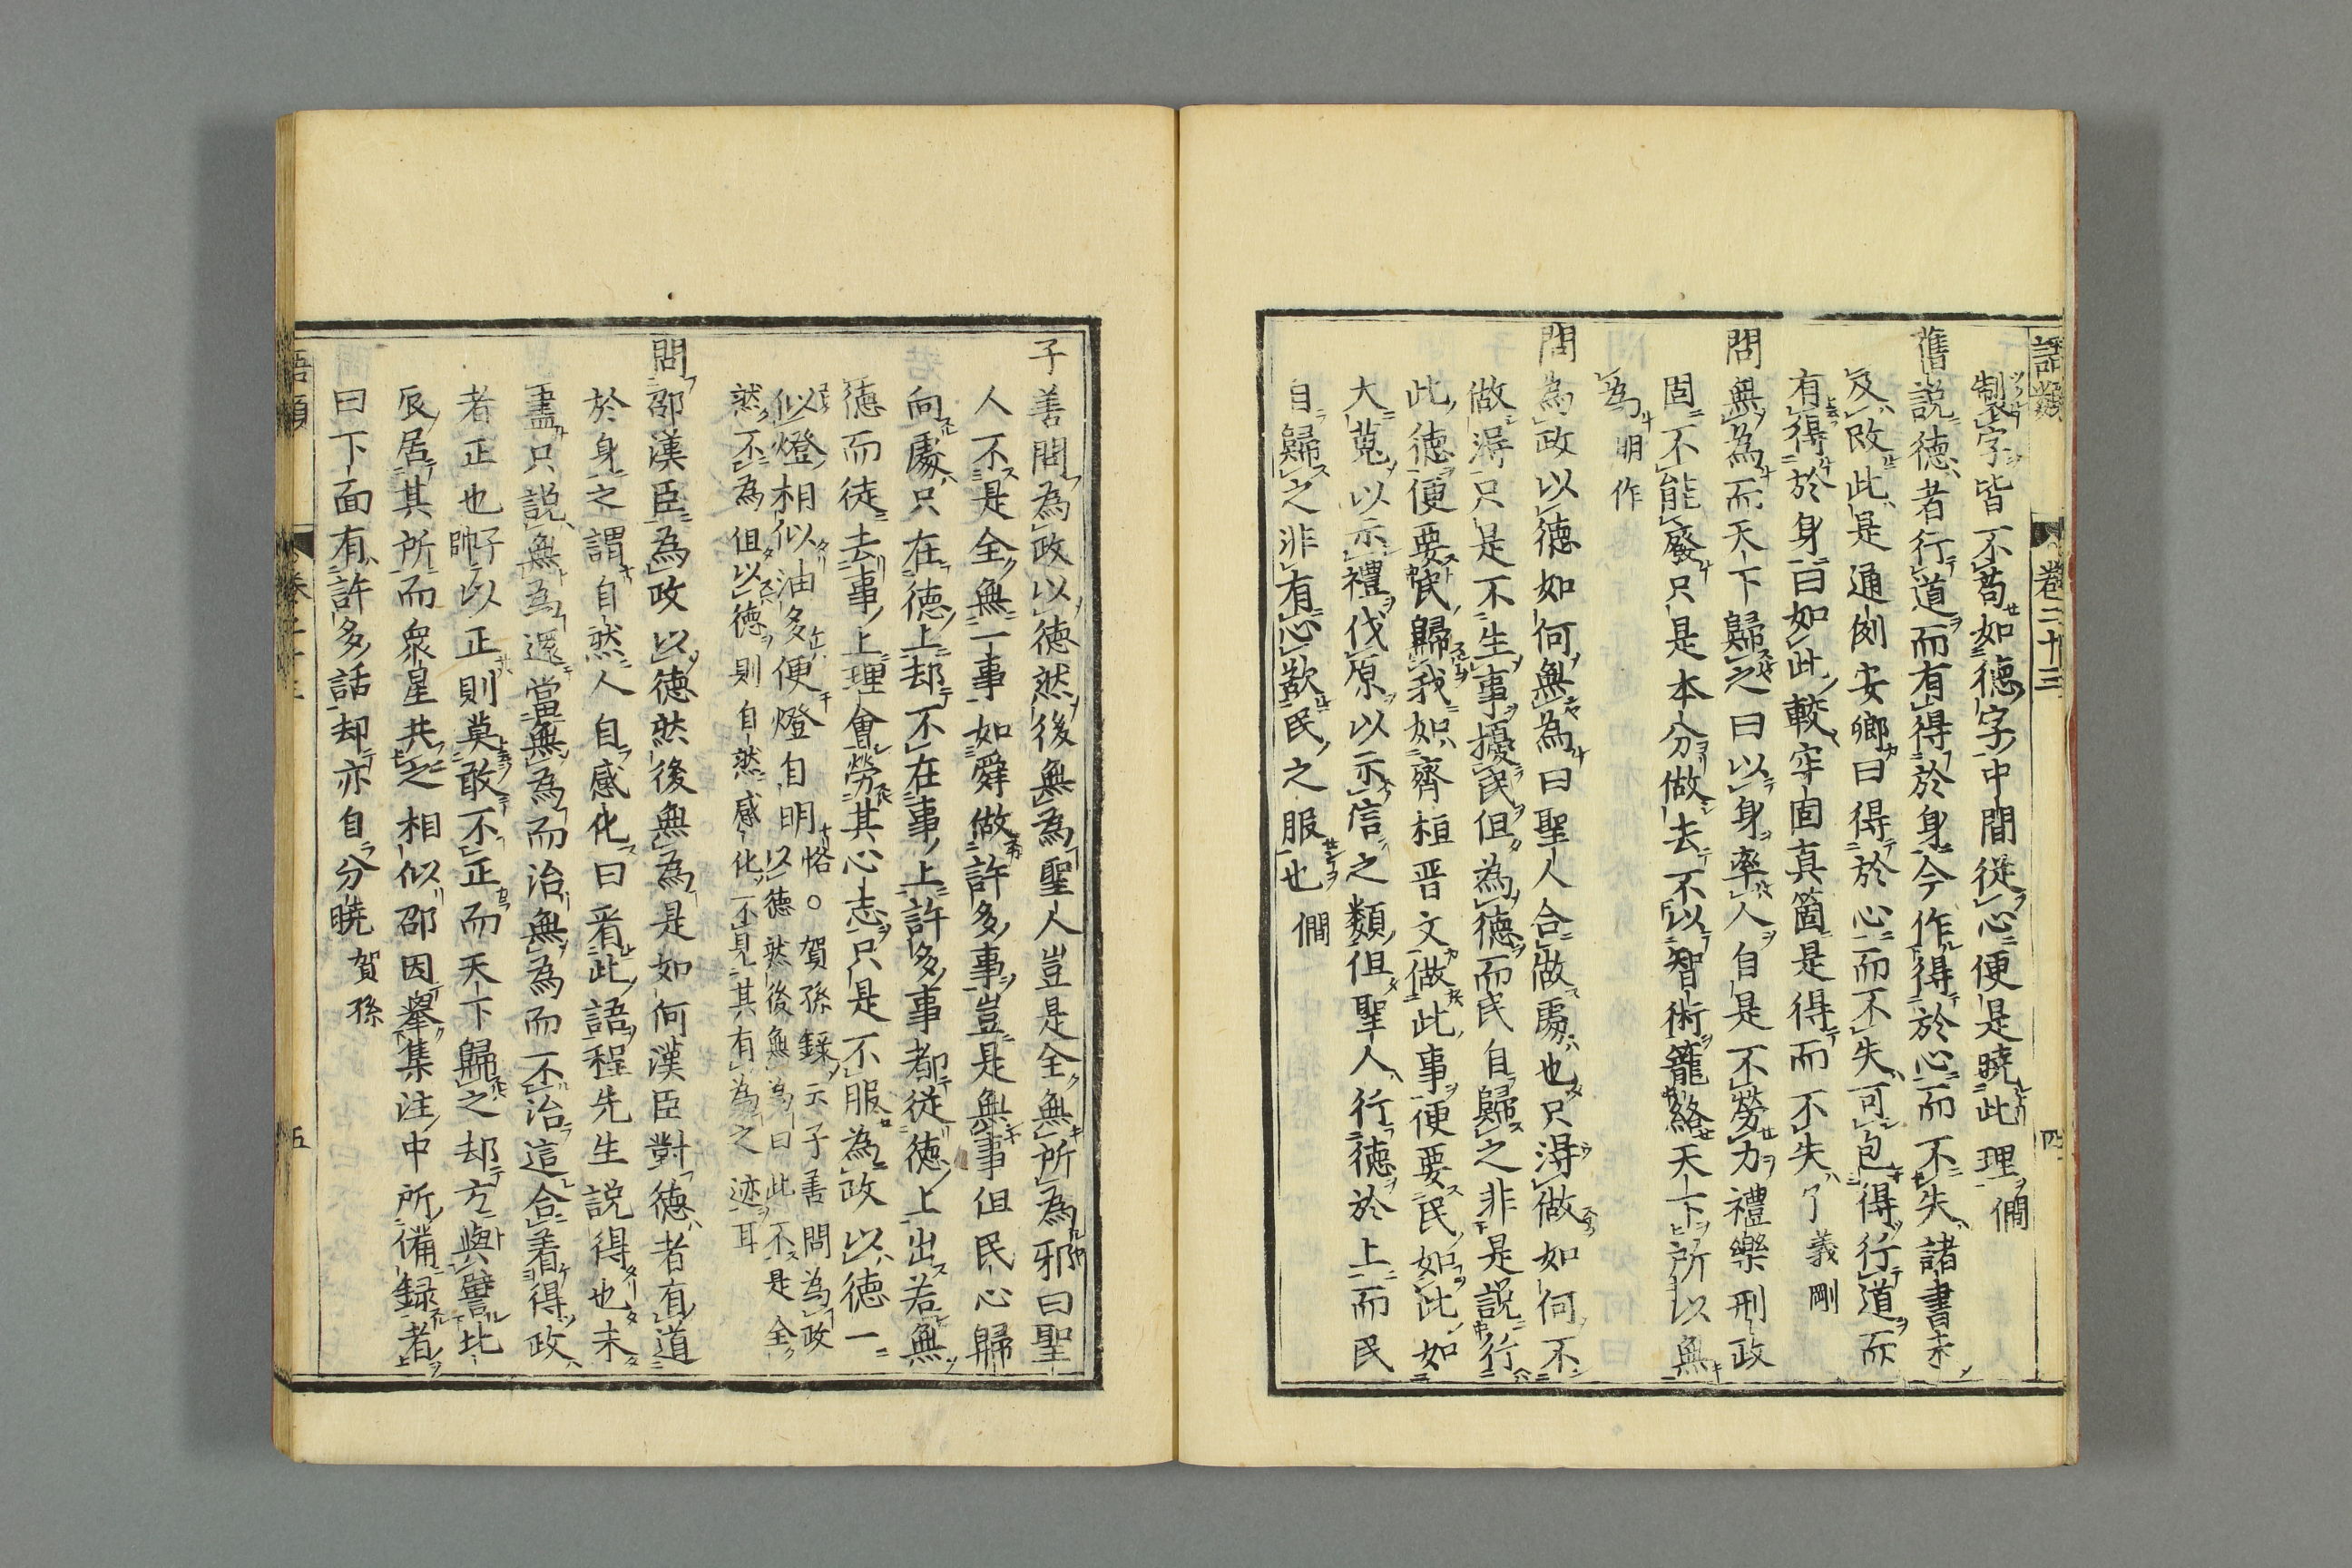 語類
卷二十三
四
製字皆不苟如德字中間從心便是曉此理僩
舊説德者行道而有得於身今作得於心而不失諸書未
及改此是通例安卿曰得於心而不失可包得行道而
有得於身曰如此較牢固真箇是得而不失了義剛
問無為而天下歸之曰以身率人自是不勞力禮樂刑政
固不能廢只是本分做去不以智術籠絡天下所以無
為明作
問為政以德如何無為曰聖人合做處也只得做如何不
做得只是不生事擾民但為德而民自歸之非是説行
此德便要民歸我如齊桓晋文做此事便要民如此如
大蒐以示禮伐原以示信之類但聖人行德於上而民
自歸之非有心欲民之服也僩
子善問為政以德然後無為聖人豈是全無所為邪曰聖
人不是全無一事如舜做許多事豈是無事但民心歸
向處只在德上却不在事上許多事都從德上出若無
德而徒去事上理會勞其心志只是不服為政以德一
似燈相似油多便燈自明恪○賀孫録云子善問為政
以德然後無為曰此不是全
然不為但以德則自然感化不見其有為之迹耳
問邵漢臣為政以德然後無為是如何漢臣對德者有道
於身之謂自然人自感化曰看此語程先生説得也未
盡只説無為還當無為而治無為而不治這合着得政
者正也子帥以正則莫敢不正而天下歸之却方與譬北
辰居其所而衆星共之相似邵因擧集注中所備録者
曰下面有許多話却亦自分曉賀孫
五